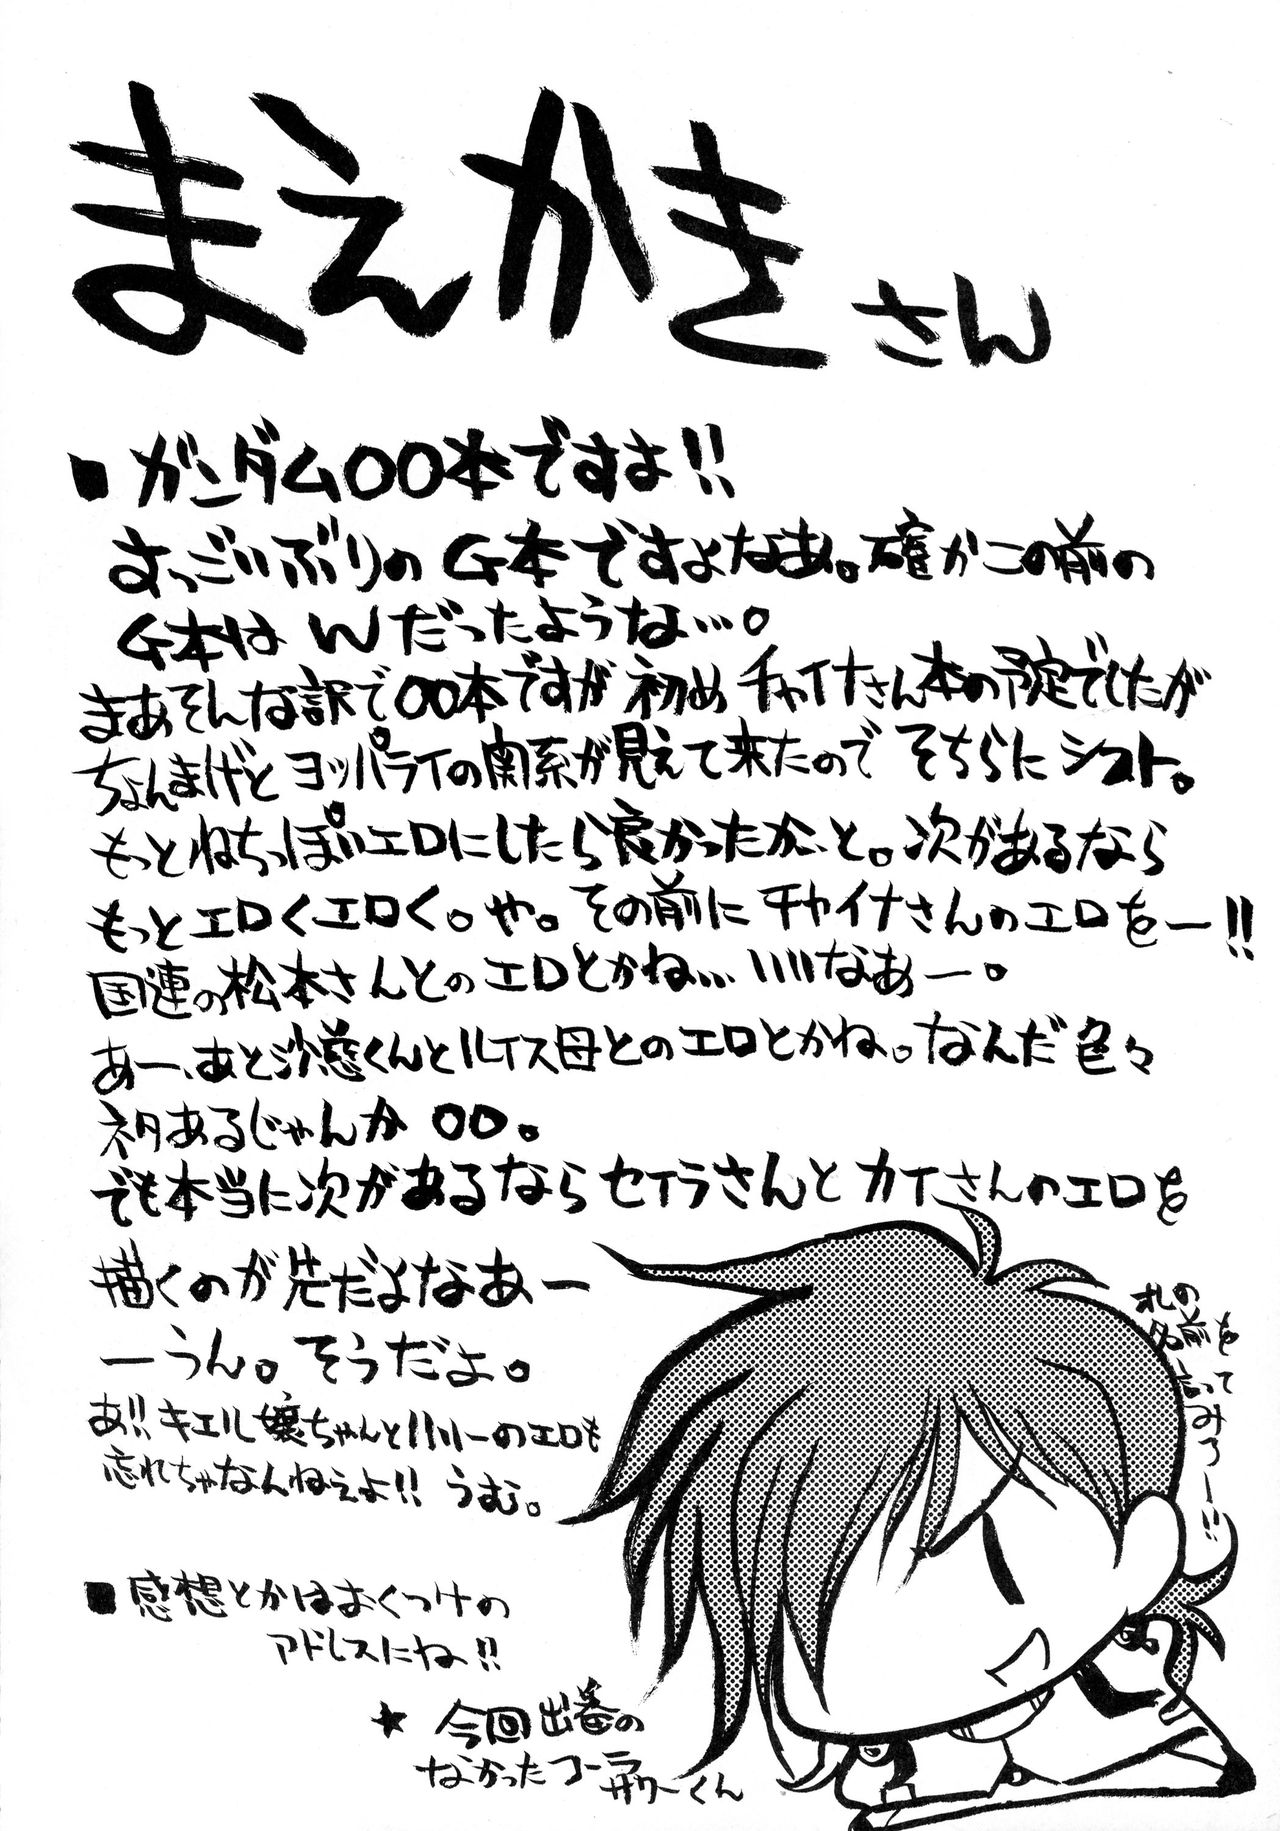 まえかきさん
■ガンダム00本ですよ!!
すっごいぶりのG本ですよなぁ。確かこの前の
G本はWだったような…。
まあそんな訳で00本ですが初めチャイナさん本の予定でしたが
ちょんまげとヨッパライの関系が見えて来たのでそちらにシフト。
もっとねちっぽいエロにしたら良かったか、と。次があるなら
もっとエロくエロく。や。その前にチャイナさんのエロをー!!
国連の松本さんとのエロとかね…いいなあー。
あー、あと沙慈くんとルイス母とのエロとかね。なんだ色々
ネタあるじゃんか00。
でも本当に次があるならセイラさんとカイさんのエロを
描くのが先だよなあー
ーうん。そうだよ。
あ!!キエル嬢ちゃんとハリーのエロも
忘れちゃなんねぇよ!!うむ。
■感想とかはおくつけの
アドレスにね!!
★今回出番の
なかったコーラサワーくん
オレの
名前を
言って
みろー!!